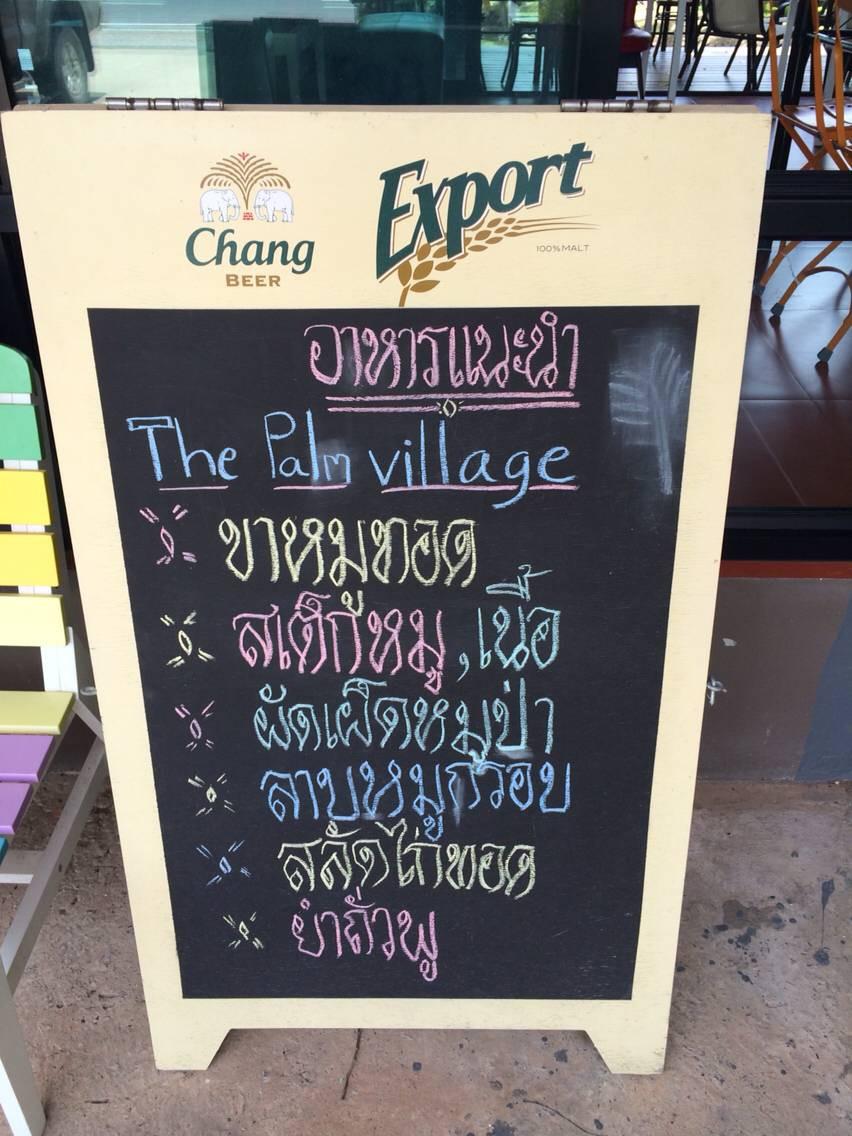 Chang
BEER
Export
100% MALT
อาหารแนะนำ
The Palm village
ขาหมูทอด
สเต็กหมู, เนื้อ
ผัดเผ็ดหมูป่า
ลาบหมูกรอบ
สลัดไก่ทอด
ยำถั่วพู